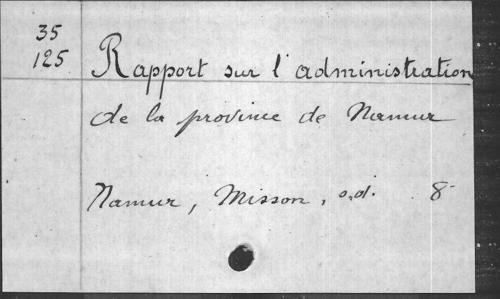 35
125
Rapport sur l'administration
de la province de Namur
Namur, Misson, s.d. 8°